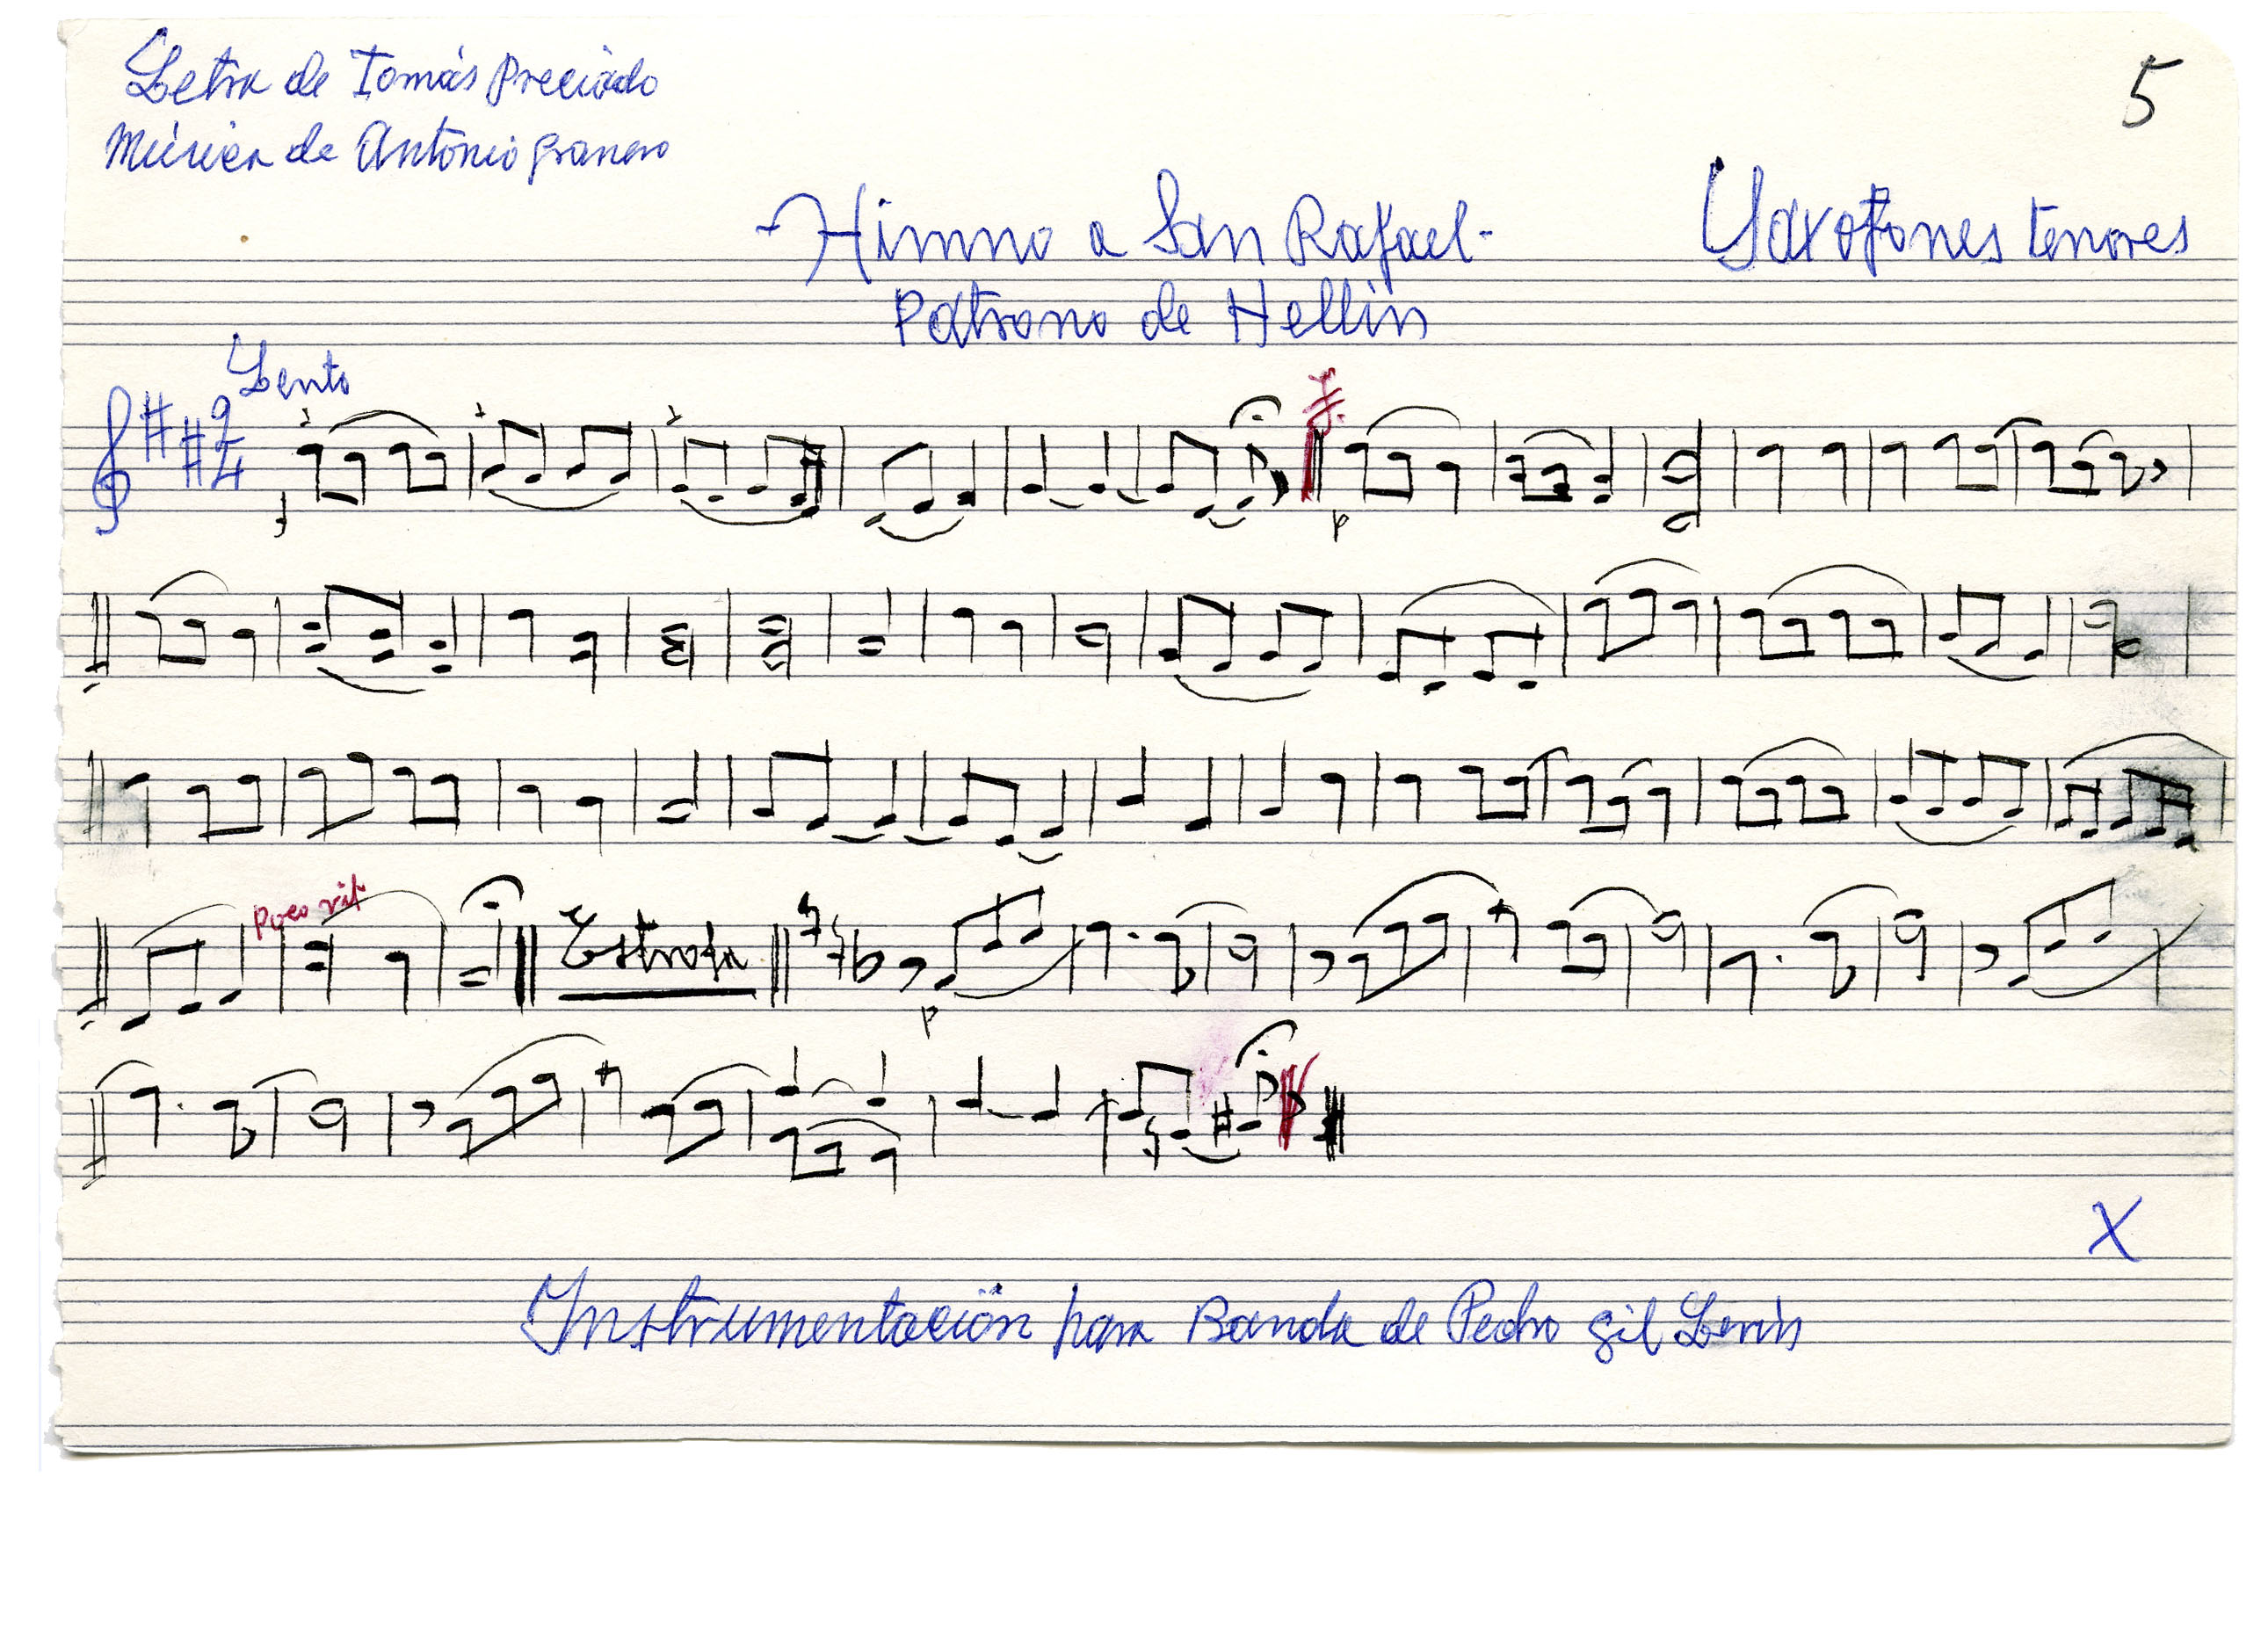 Letra de Tomás Preciado
5
Música de Antonio Granero
- Himno a San Rafael -
Saxofones tenores
Patrono de Hellín
Lento
2
4
f
p
Poco rit.
Estrofa
p
X
Instrumentación para Banda de Pedro Gil Lerín